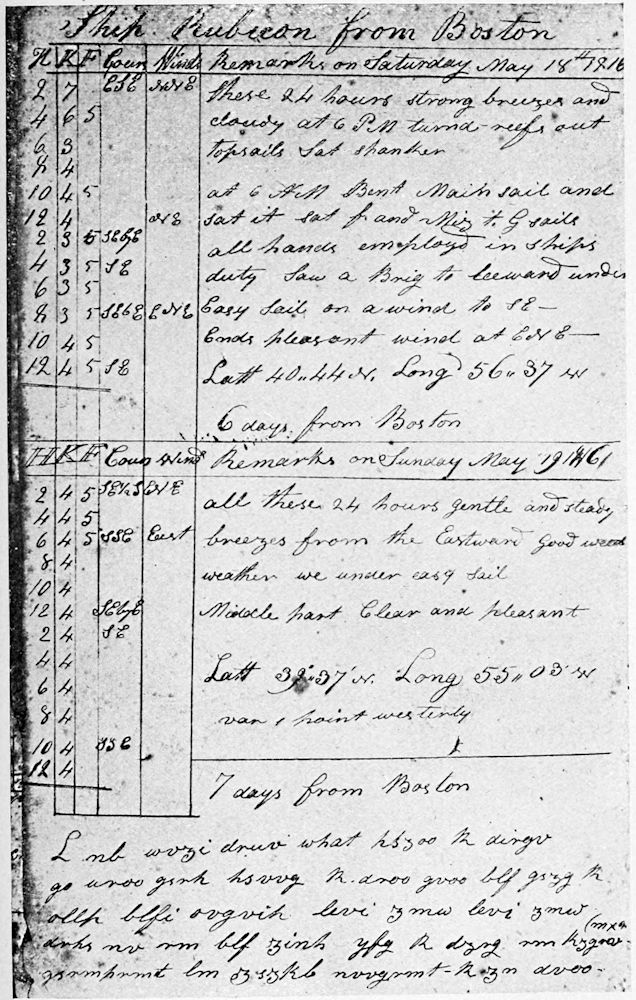 Ship Rubicon from Boston
H K F Cour Winds Remarks on Saturday May 18th 1816
2 7 ESE NNE these 24 hours strong breezes and
4 6 5 cloudy at 6 PM turnd reefs out
6 3 topsails Sat spanker
8 4
10 4 5 at 6 AM Bent Main sail and
12 4 NE sat it sat f and Miz t. G sails
2 3 5 SEbyE all hands employd in ships
4 3 5 SE duty Saw a Brig to leeward under
6 3 5
8 3 5 SEbE ENE Easy sail on a wind to SE —
10 4 5 Ends pleasant wind at ENE —
12 4 5 SE Latt 40,,44 N. Long 56,,37 W
6 days from Boston
H K F Cour Wind Remarks on Sunday May 19 1816
2 4 5 ENE all these 24 hours gentle and steady
4 4 5
6 4 5 SSE East breezes from the Eastward good
8 4 weather we under easy sail
10 4
12 4 SEbyE Middle part Clear and pleasant
2 4 SE
4 4 Latt 39°,,37' N. Long 55,,03' W
6 4
8 4 var 1 point westerly
10 4 SSE
12 4
7 days from Boston
L nb wvzi druv what hszoo R dirgv
go uroo gsrh hsvvg R droo gvoo blf gszg R
ollp blfi ovgvih levi zmw levi zmw
drhs nv rm blf zinh yfg R dzrg rm
gsrmprmt lm z szkb nvvgrmt - R zn dvoo -